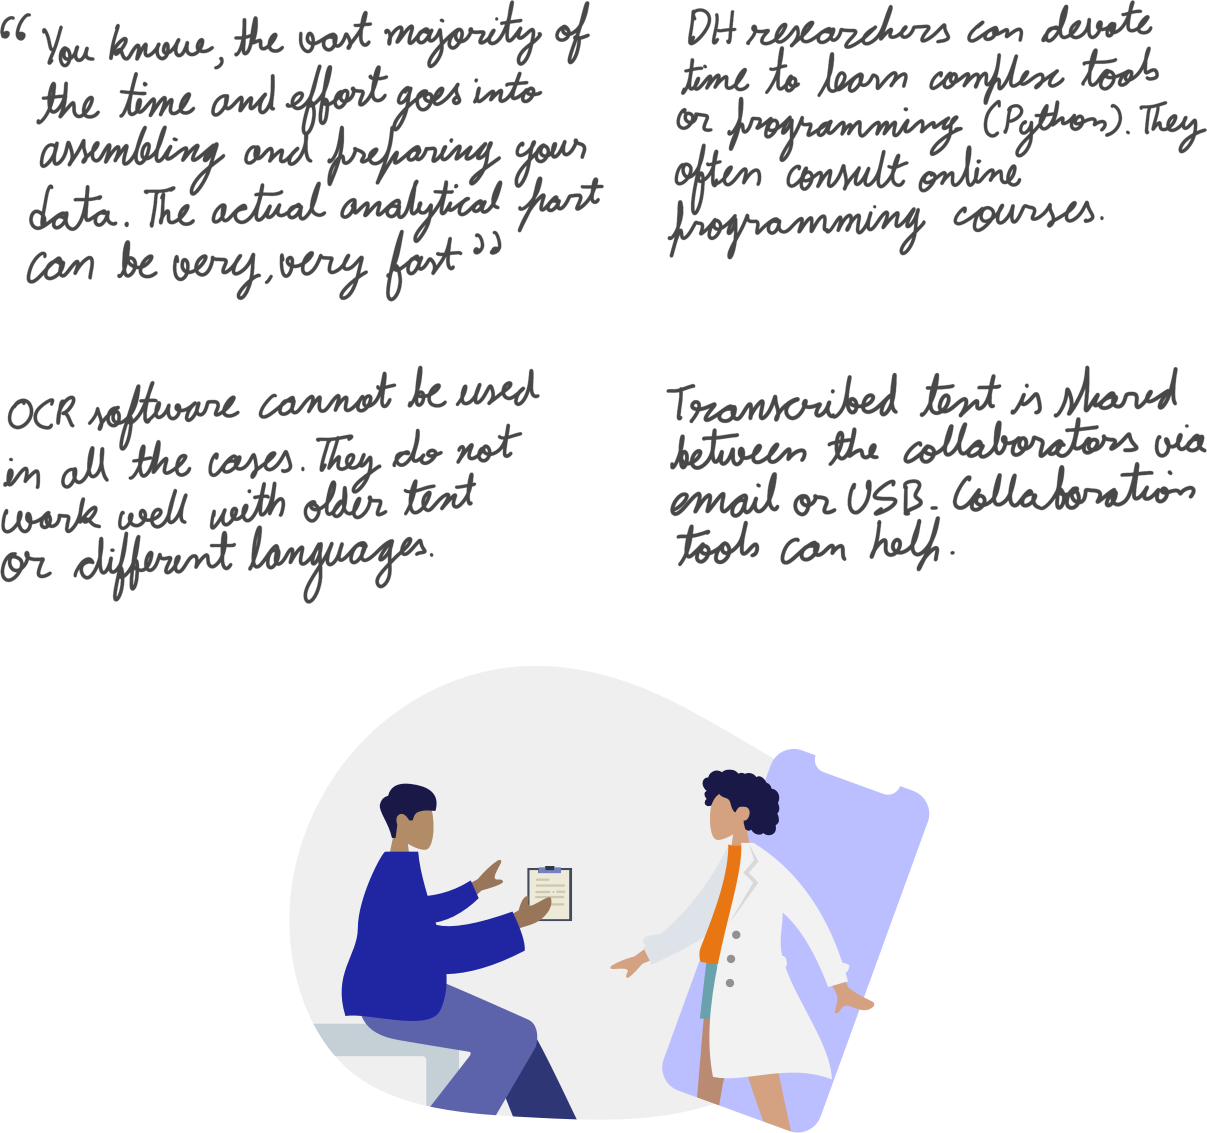 “ You know, the vast majority of
the time and effort goes into
assembling and preparing your
data. The actual analytical part
can be very, very fast ”
DH researchers can devote
time to learn complex tools
or programming (Python). They
often consult online
programming courses.
OCR software cannot be used
in all the cases. They do not
work well with older text
or different languages.
Transcribed text is shared
between the collaborators via
email or USB. Collaboration
tools can help.